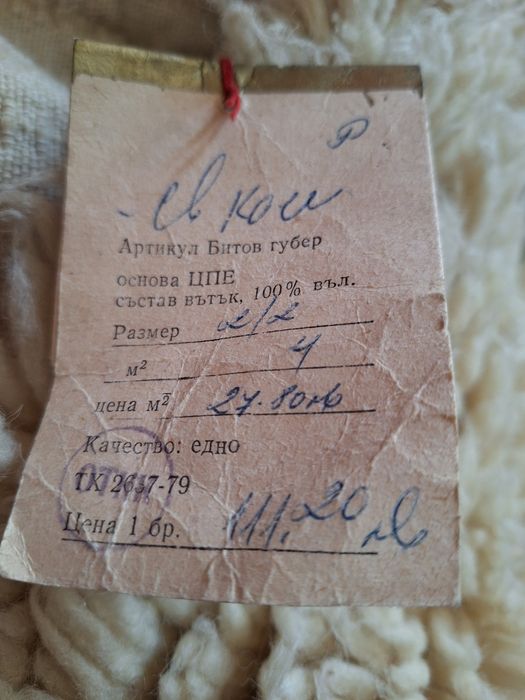 Артикул Битов губер
основа ЦПЕ
състав вътък, 100% въл.
Размер 2/2
м² 4
цена м² 27.80 лв
Качество: едно
ТК 2637-79
Цена 1 бр. 111.20 лв